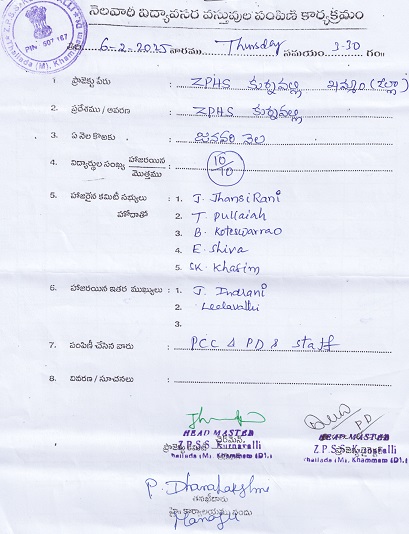 నెలవారీ విద్యావసర వస్తువుల పంపిణీ కార్యక్రమం
PIN 507 167
తేది 6-2-2025 వారము Thursday సమయం 3-30 గం॥
1. ప్రాజెక్టు పేరు : ZPHS కుర్నవల్లి ఖమ్మం (జిల్లా)
2. ప్రదేశము / ఆవరణ : ZPHS కుర్నవల్లి
3. ఏ నెల కొఱకు : జనవరి నెల
4. విద్యార్థుల సంఖ్య హాజరయిన / మొత్తము : 10/10
5. హాజరైన కమిటీ సభ్యులు హోదాతో : 1. J. JhansiRani
2. T. pullaiah
3. B. Koteswarrao
4. E. Shiva
5. SK. Khasim
6. హాజరయిన ఇతర ముఖ్యులు : 1. J. Indrani
2. Leelavathi
3.
7. పంపిణీ చేసిన వారు : PCC & PD & staff
8. వివరణ / సూచనలు :
P.D
HEAD MASTER HEAD MASTER
Z.P.S.S Kurnavalli Z.P.S.S Kurnavalli
Thallada (M), Khammam (Dt.) Thallada (M), Khammam (Dt.)
P. Dhanalakshmi